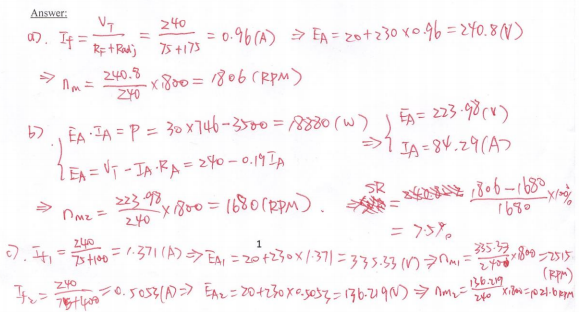 Answer:
a). If = VT / (RF + Radj) = 240 / (75+175) = 0.96 (A) ⇒ EA = 20 + 230 × 0.96 = 240.8 (V)
⇒ nm = 240.8 / 240 × 1800 = 1806 (RPM)
b) { EA · IA = P = 30 × 746 - 3500 = 18880 (W) ⇒ { EA = 223.98 (V)
EA = VT - IA · RA = 240 - 0.19 IA IA = 84.29 (A)
⇒ nm2 = 223.98 / 240 × 1800 = 1680 (RPM). ⇒ SR = (1806 - 1680) / 1680 × 100%
= 7.5%
1
c). If1 = 240 / (75+100) = 1.371 (A) ⇒ EA1 = 20 + 230 × 1.371 = 335.33 (V) ⇒ nm1 = 335.33 / 240 × 1800 = 2515 (RPM)
If2 = 240 / (75+400) = 0.5053 (A) ⇒ EA2 = 20 + 230 × 0.5053 = 136.219 (V) ⇒ nm2 = 136.219 / 240 × 1800 = 1021.6 RPM